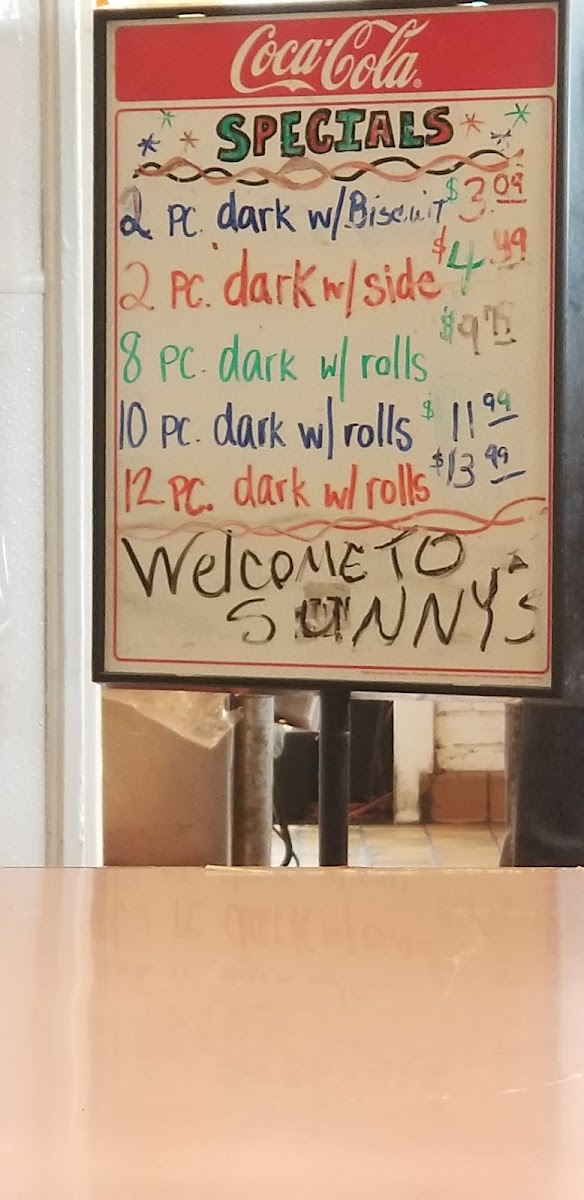 Coca-Cola
SPECIALS
2 pc. dark w/Biscuit $3.09
2 pc. dark w/side $4.49
8 pc. dark w/ rolls
10 pc. dark w/rolls $11.99
12 pc. dark w/rolls $13.99
WelcoME TO
SUNNY'S